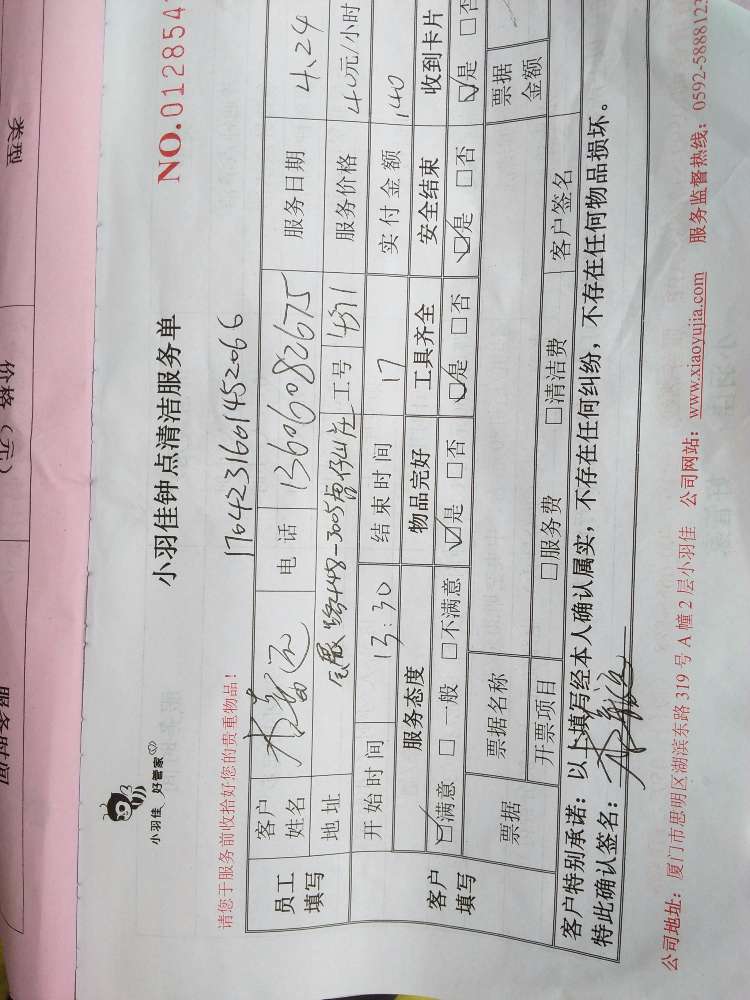 类型
价格（元）
服务时间
小羽佳 好管家
小羽佳钟点清洁服务单
NO.012854
请您于服务前收拾好您的贵重物品！
1704231601452066
员工填写
客户姓名
电话 13606082675
服务日期 4.24
地址
448-3005
工号 4371
服务价格 40元/小时
客户填写
开始时间 13:30 结束时间 17 实付金额 140
服务态度 物品完好 工具齐全 安全结束 收到卡片
☑满意 □一般 □不满意 ☑是 □否 ☑是 □否 ☑是 □否 ☑是 □否
票据 票据名称 票据金额
开票项目 □服务费 □清洁费 客户签名
客户特别承诺：以上填写经本人确认属实，不存在任何纠纷，不存在任何物品损坏。
特此确认签名：
公司地址：厦门市思明区湖滨东路 319 号 A 幢 2 层小羽佳 公司网站：www.xiaoyujia.com 服务监督热线：0592-5888123